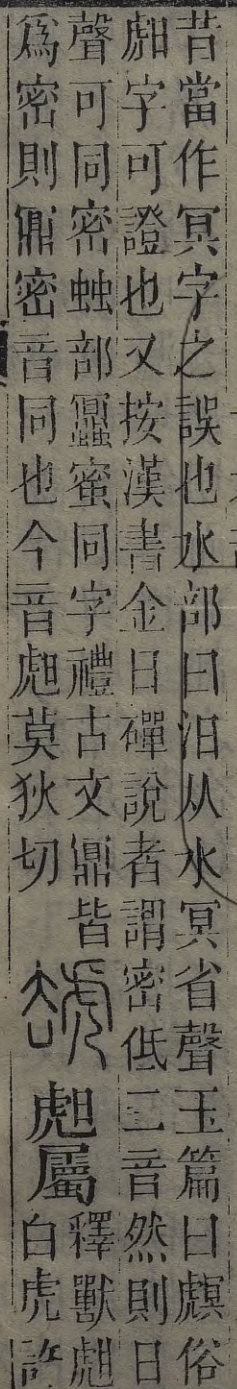 昔當作冥字之誤也水部曰汨从水冥省聲玉篇曰俗
䖑字可證也又按漢書金日磾說者謂密低二音然則日
聲可同密䖵部𧖅蜜同字禮古文鼏皆
爲密則鼏密音同也今音䖑莫狄切
䖑屬
釋獸甝
白虎許